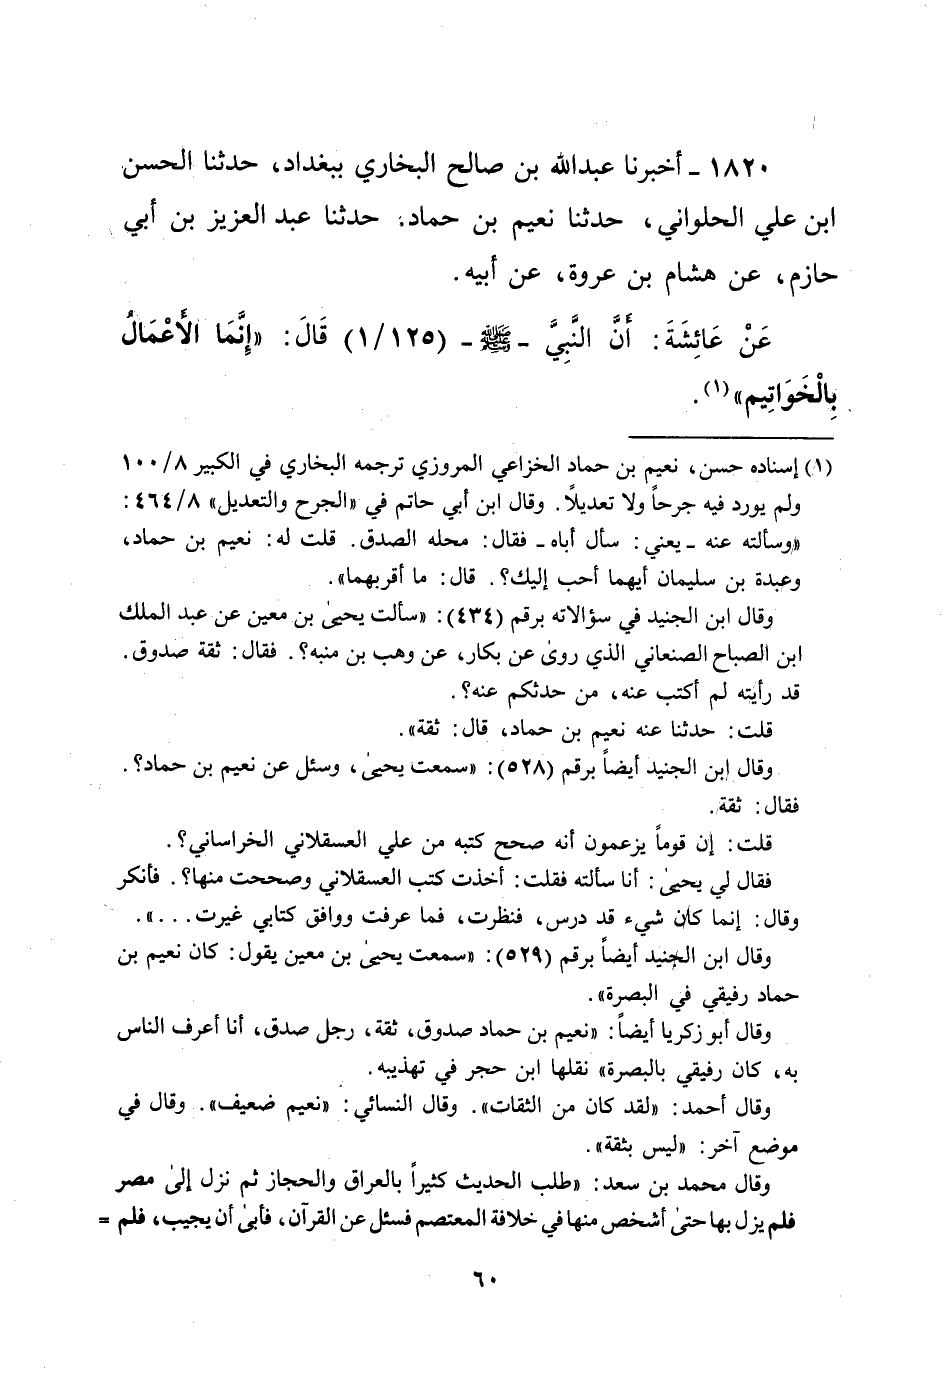 ١٨٢٠ ـ أخبرنا عبدالله بن صالح البخاري ببغداد، حدثنا الحسن
ابن علي الحلواني، حدثنا نعيم بن حماد، حدثنا عبد العزيز بن أبي
حازم، عن هشام بن عروة، عن أبيه.
عَنْ عَائِشَةَ: أَنَّ النَّبِيَّ ـ ﷺ ـ (١/١٢٥) قَالَ: «إِنَّمَا الأَعْمَالُ
بِالْخَوَاتِيمِ»(١).
(١) إسناده حسن، نعيم بن حماد الخزاعي المروزي ترجمه البخاري في الكبير ١٠٠/٨
ولم يورد فيه جرحاً ولا تعديلًا. وقال ابن أبي حاتم في «الجرح والتعديل» ٤٦٤/٨:
«وسألته عنه ـ يعني: سأل أباه ـ فقال: محله الصدق. قلت له: نعيم بن حماد،
وعبدة بن سليمان أيهما أحب إليك؟. قال: ما أقربهما».
وقال ابن الجنيد في سؤالاته برقم (٤٣٤): «سألت يحيىٰ بن معين عن عبد الملك
ابن الصباح الصنعاني الذي روىٰ عن بكار، عن وهب بن منبه؟. فقال: ثقة صدوق.
قد رأيته لم أكتب عنه، من حدثكم عنه؟.
قلت: حدثنا عنه نعيم بن حماد، قال: ثقة».
وقال ابن الجنيد أيضاً برقم (٥٢٨): «سمعت يحيىٰ، وسئل عن نعيم بن حماد؟.
فقال: ثقة.
قلت: إن قوماً يزعمون أنه صحح كتبه من علي العسقلاني الخراساني؟.
فقال لي يحيىٰ: أنا سألته فقلت: أخذت كتب العسقلاني وصححت منها؟. فأنكر
وقال: إنما كان شيء قد درس، فنظرت، فما عرفت ووافق كتابي غيرت...».
وقال ابن الجنيد أيضاً برقم (٥٢٩): «سمعت يحيىٰ بن معين يقول: كان نعيم بن
حماد رفيقي في البصرة».
وقال أبو زكريا أيضاً: «نعيم بن حماد صدوق، ثقة، رجل صدق، أنا أعرف الناس
به، كان رفيقي بالبصرة» نقلها ابن حجر في تهذيبه.
وقال أحمد: «لقد كان من الثقات». وقال النسائي: «نعيم ضعيف». وقال في
موضع آخر: «ليس بثقة».
وقال محمد بن سعد: «طلب الحديث كثيراً بالعراق والحجاز ثم نزل إلىٰ مصر
فلم يزل بها حتىٰ أشخص منها في خلافة المعتصم فسئل عن القرآن، فأبىٰ أن يجيب، فلم =
٦٠